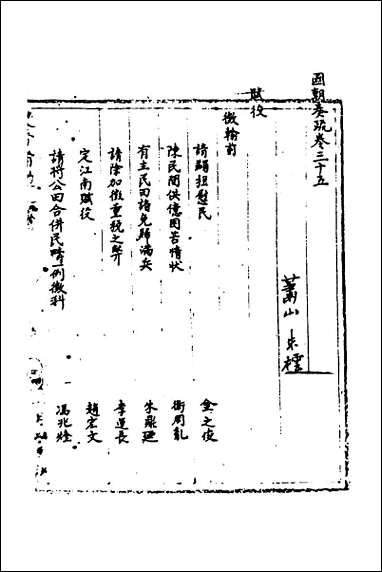 國朝奏疏卷三十五
蕭山朱橒
賦役
徵輸前
請蠲担慰民 金之俊
陳民間供億困苦情狀 衛周胤
有主民田請免歸滿兵 朱鼎延
請除加徵重税之弊 李運長
定江南賦役 趙宏文
請将公田合併民畸一例徵科 馮兆煃